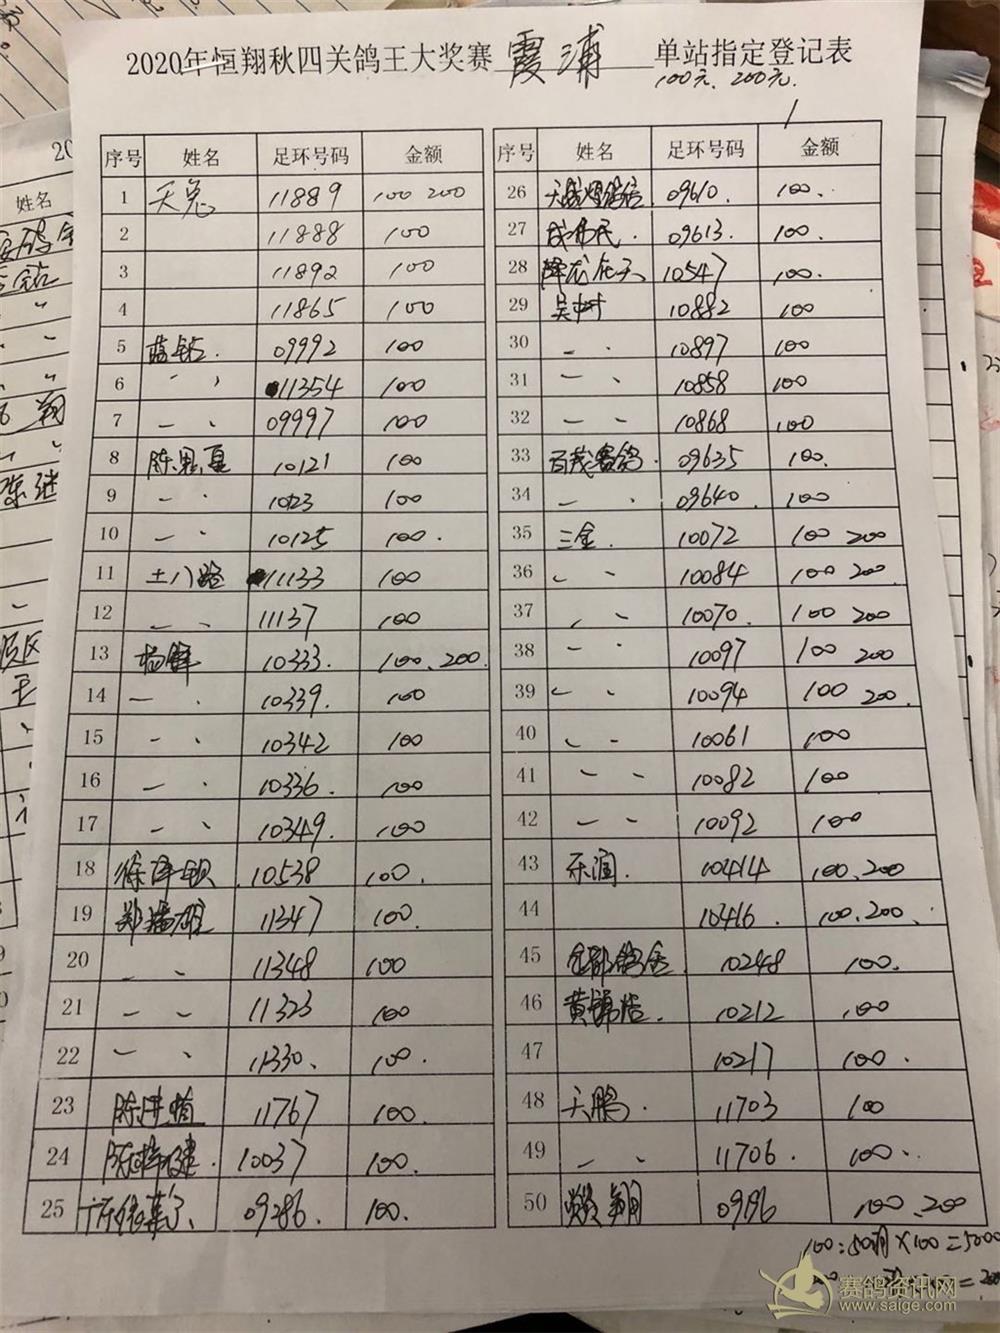 2020年恒翔秋四关鸽王大奖赛 霞浦 单站指定登记表
100元、200元
序号 姓名 足环号码 金额
1 天兔 11889 100 200
2 11888 100
3 11892 100
4 11865 100
5 蓝钻. 09992 100
6 〃 11354 100
7 〃 09997 100
8 陈思夏 10121 100
9 〃 10123 100
10 〃 10125 100.
11 土八路 11133 100
12 〃 11137 100
13 杨锋 10333. 100.200.
14 〃 10339. 100
15 〃 10342 100
16 〃 10336. 100
17 〃 10349. 100
18 10538 100.
19 11347 100
20 〃 11348 100
21 〃 11323 100
22 〃 11330、 100.
23 11767 100
24 10037 100.
25 09286. 100.
序号 姓名 足环号码 金额
26 09610. 100.
27 09613. 100.
28 10547 100.
29 10882 100
30 〃 10897 100
31 〃 10858 100
32 〃 10868 100
33 百茂赛鸽. 09635 100.
34 〃 09640. 100
35 三金. 10072 100 200
36 〃 10084 100 200
37 〃 10070. 100 200
38 〃 10097 100 200
39 〃 10094 100 200
40 〃 10061 100
41 〃 10082 100
42 〃 10092 100
43 乐润. 10414 100.200
44 10416. 100.200.
45 10248 100.
46 10212 100
47 10217 100.
48 天鹏. 11703 100
49 〃 11706. 100.
50 09196 100.200
100:50羽×100=5000
赛鸽资讯网
www.saige.com
姓名